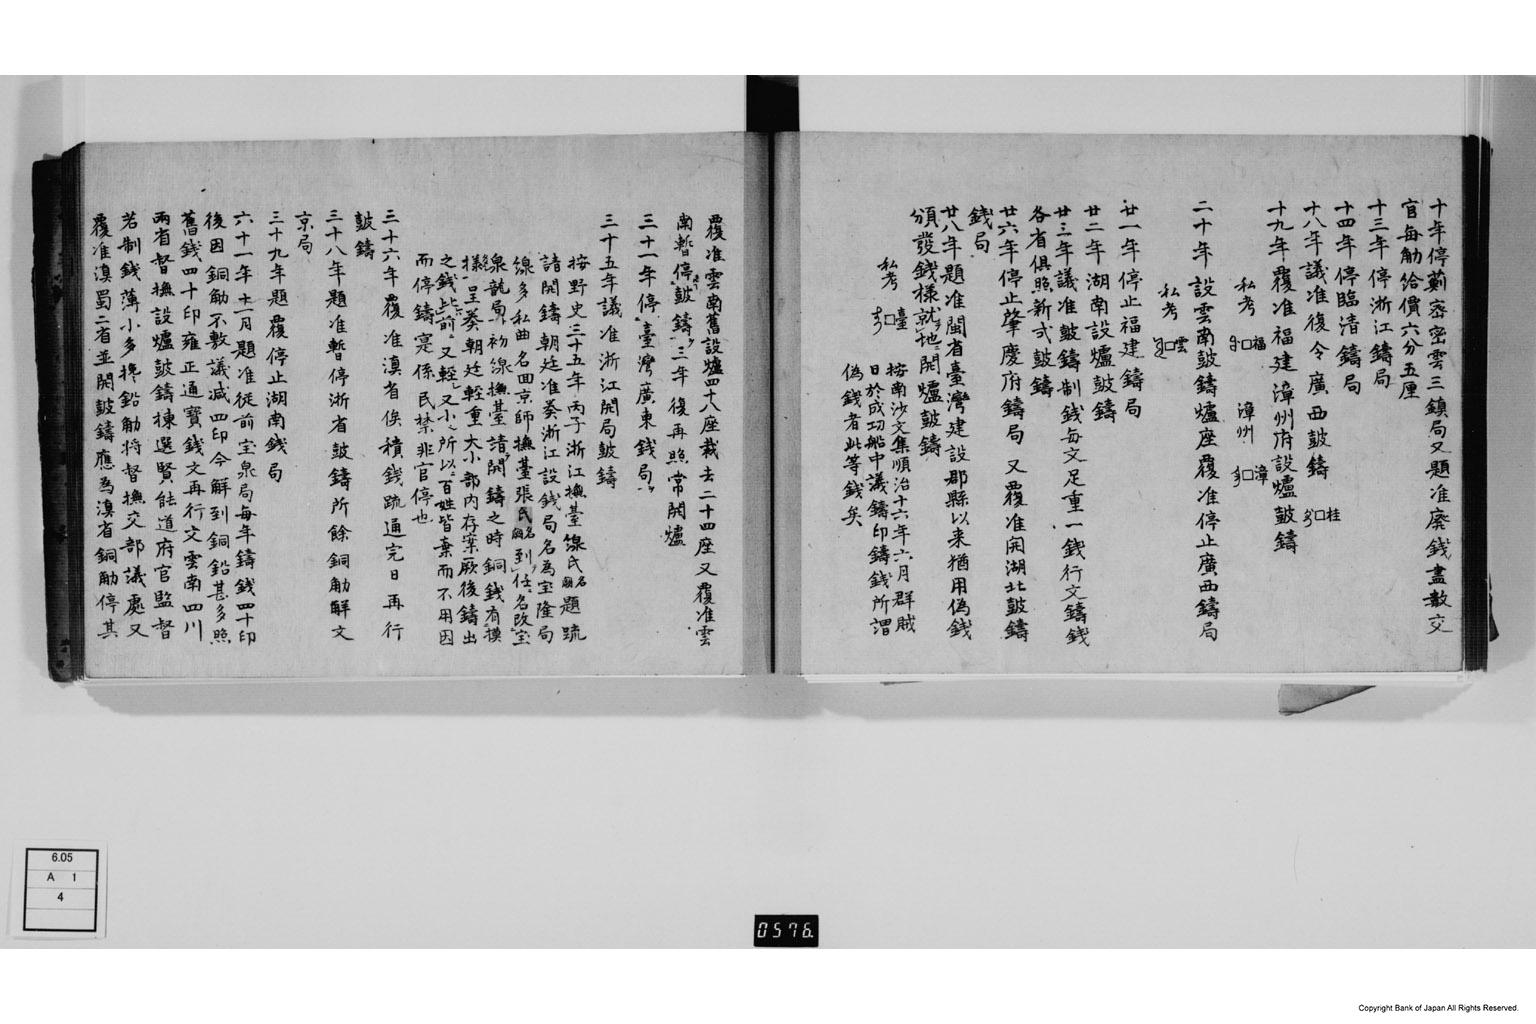 十年停薊密密雲三鎮局又題准廢錢盡数交
官每觔給價六分五厘
十三年停浙江鑄局
十四年停臨清鑄局
十八年議准復令廣西皷鑄 桂
十九年覆准福建漳州府設爐皷鑄
私考 福 漳州 漳
二十年 設雲南皷鑄爐座覆准停止廣西鑄局
私考 雲
廿一年停止福建鑄局
廿二年湖南設爐皷鑄
廿三年議准皷鑄制錢每文足重一錢行文鑄錢
各省俱照新式皷鑄
廿六年停止肇慶府鑄局 又覆准開湖北皷鑄
錢局
廿八年題准閩省臺灣建設郡縣以来猶用偽錢
頒發錢樣就地開爐皷鑄
私考 臺 按南沙文集順治十六年六月群賊
日於成功船中議鑄印鑄錢所謂
偽錢者此等錢矣
覆准雲南舊設爐四十八座裁去二十四座又覆准雲
南暫停皷鑄三年復再照常開爐
三十一年停臺灣廣東錢局
三十五年議准浙江開局皷鑄
按野史三十五年丙子浙江撫臺線氏名題疏
請開鑄朝廷准奏浙江設錢局名為宝隆局
線多私曲名回京師撫臺張氏名到任名改宝
泉龍局初線撫臺請開鑄之時銅錢有摸
樣呈奏朝廷輕重大小部内存案厥後鑄出
之錢比前又輕又小所以百姓皆棄而不用因
而停鑄寔係民禁非官停也
三十六年覆准滇省俟積錢疏通完日再行
皷鑄
三十八年題准暫停浙省皷鑄所餘銅觔解交
京局
三十九年題覆停止湖南錢局
六十一年十一月題准従前宝泉局每年鑄錢四十印
後因銅觔不敷議减四印今解到銅鉛甚多照
舊錢四十印雍正通寳錢文再行文雲南四川
兩省督撫設爐皷鑄揀選賢能道府官監督
若制錢薄小多攙鉛觔将督撫交部議處又
覆准滇蜀二省並開皷鑄應為滇省銅觔停其
6.05
A 1
4
0576.
Copyright Bank of Japan All Rights Reserved.